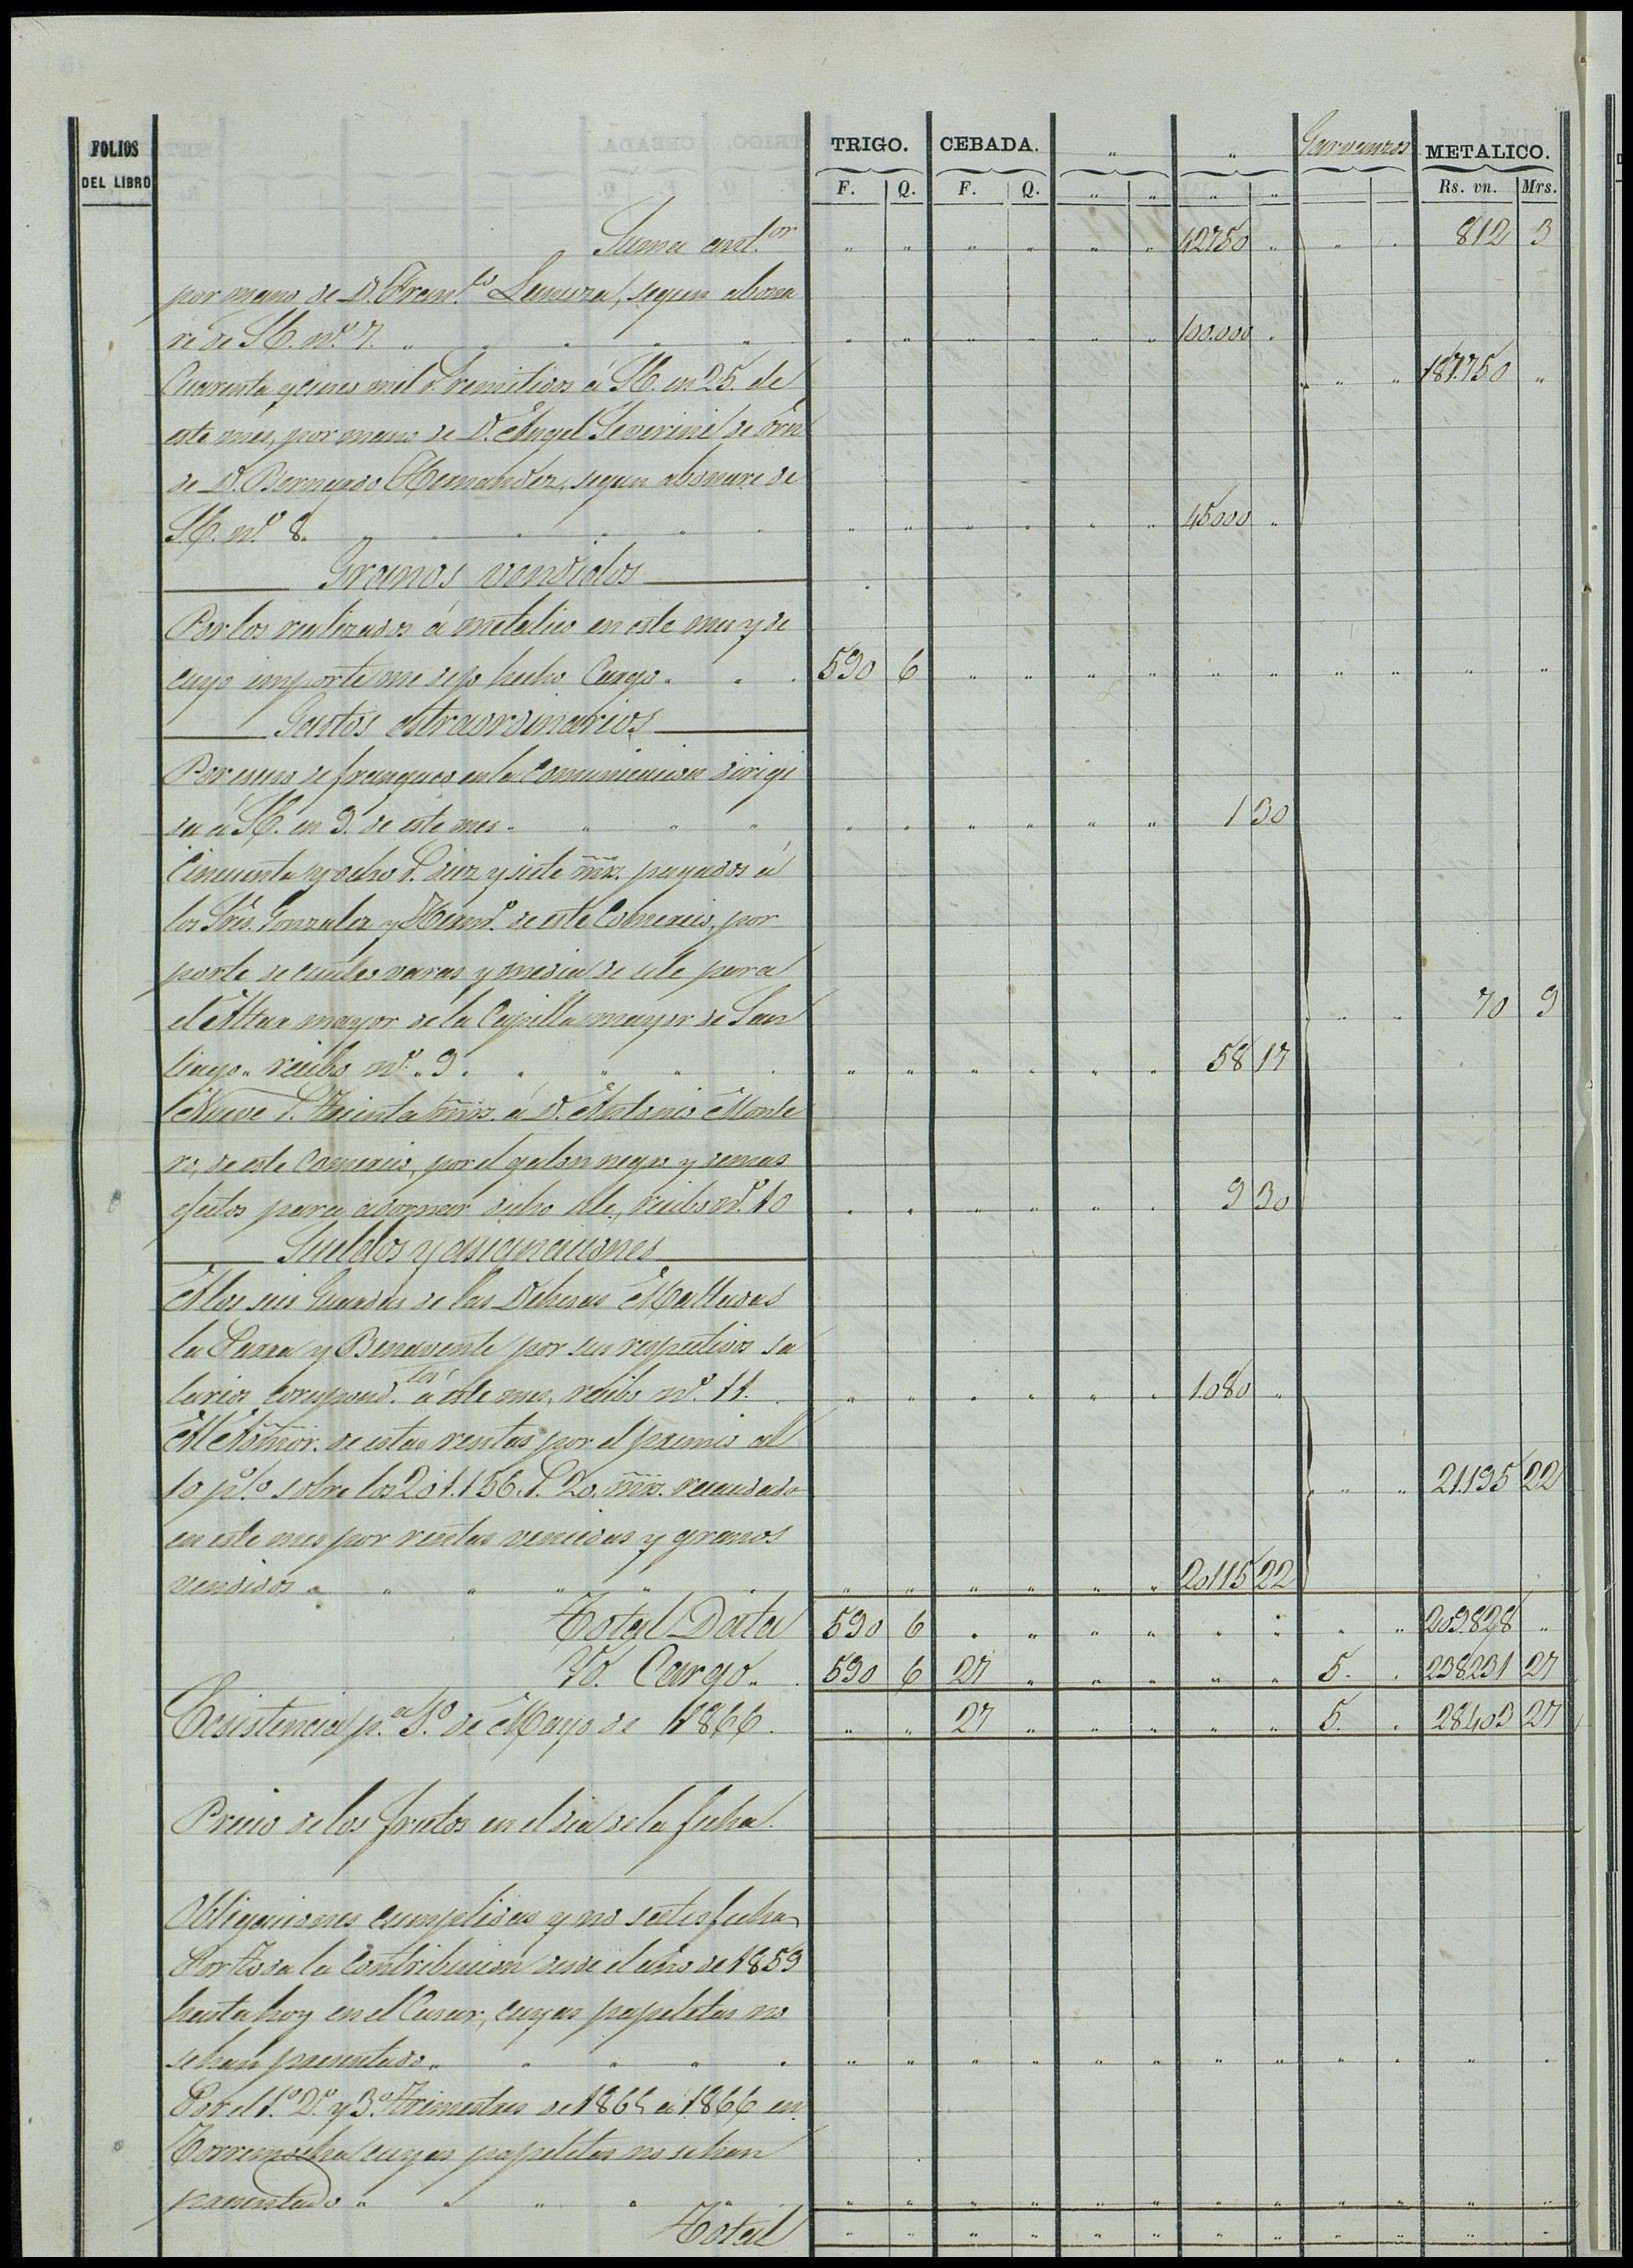 FOLIOS DEL LIBRO TRIGO. CEBADA. " " Garvanzos METALICO.
F. Q. F. Q. " " " " Rs. vn. Mrs.
Suma ant.or " " " " " " 42750 " " " 812 3
por mano de D. Fran.co , segun abona
re de SE. nº 7. " " " " " " " " " " 100.000 "
Cuarenta y cinco mil r. remitidos á SE. en 25. de " " 187.750 "
este mes, por mano de D. Angel Severini de orn
de D. Bernardo Hernandez, segun abonare de
SE. nº 8. " " " " " " 45000 "
Granos vendidos
Por los realizados á metalico en este mes y de
cuyo importe me dejo hecho Cargo " " 590 6 " " " " " " " " " "
Gastos estraordinarios
Por uno de franqueo en la Comunicacion dirigi
da á SE. en 9. de este mes " " " " " " " " " " 1 30
Cincuenta y ocho r. diez y siete mrs. pagados á
los Sres. Gonzalez y Herm.º de este Comercio, por
porte de varas y media de ule para
el Altar mayor de la Capilla mayor de San " " 70 9
tiago " recibo nº 9 " " " " " " " " " " 58 17
Nueve r. treinta mrs. á D. Antonio Monte
ro, de este Comercio, por el galon negro y demas
efectos para adornar dicho ule, recibo nº 10 " " " " " " 9 30
Sueldos y asignaciones
A los seis Guardas de las Dehesas Malladas
la Parra y Benavente por sus respectivos sa
larios correspond.tes á este mes, recibo nº 11. " " " " " " 1.080 "
Al Admor. de estas rentas por el premio al
10 p% sobre los 201.156. r. 20. mrs. recaudado " " 21.195 22
en este mes por rentas vencidas y granos
vendidos " " " " " " " " " " " " 20115 22
Total Data 590 6 " " " " " " " " 209.828 "
Yd. Cargo " 590 6 27 " " " " " 5. " 238.231 27
Ecsistencia p.a 1.º de Mayo de 1866. " " 27 " " " " " 5. " 28.403 27
Precio de los frutos en el dia de la fecha.
Obligaciones cumplidas y no satisfechas
Por toda la Contribucion desde el año de 1859
hasta hoy en el Casar, cuyas papeletas no
se han presentado " " " " " " " " " " " " " " " "
Por el 1.º 2.º y 3.º trimestres de 1865 á 1866 en
Torremocha cuyas papeletas no se han
presentado " " " " " " " " " " " " " " " " "
Total " " " " " " " " " " " "